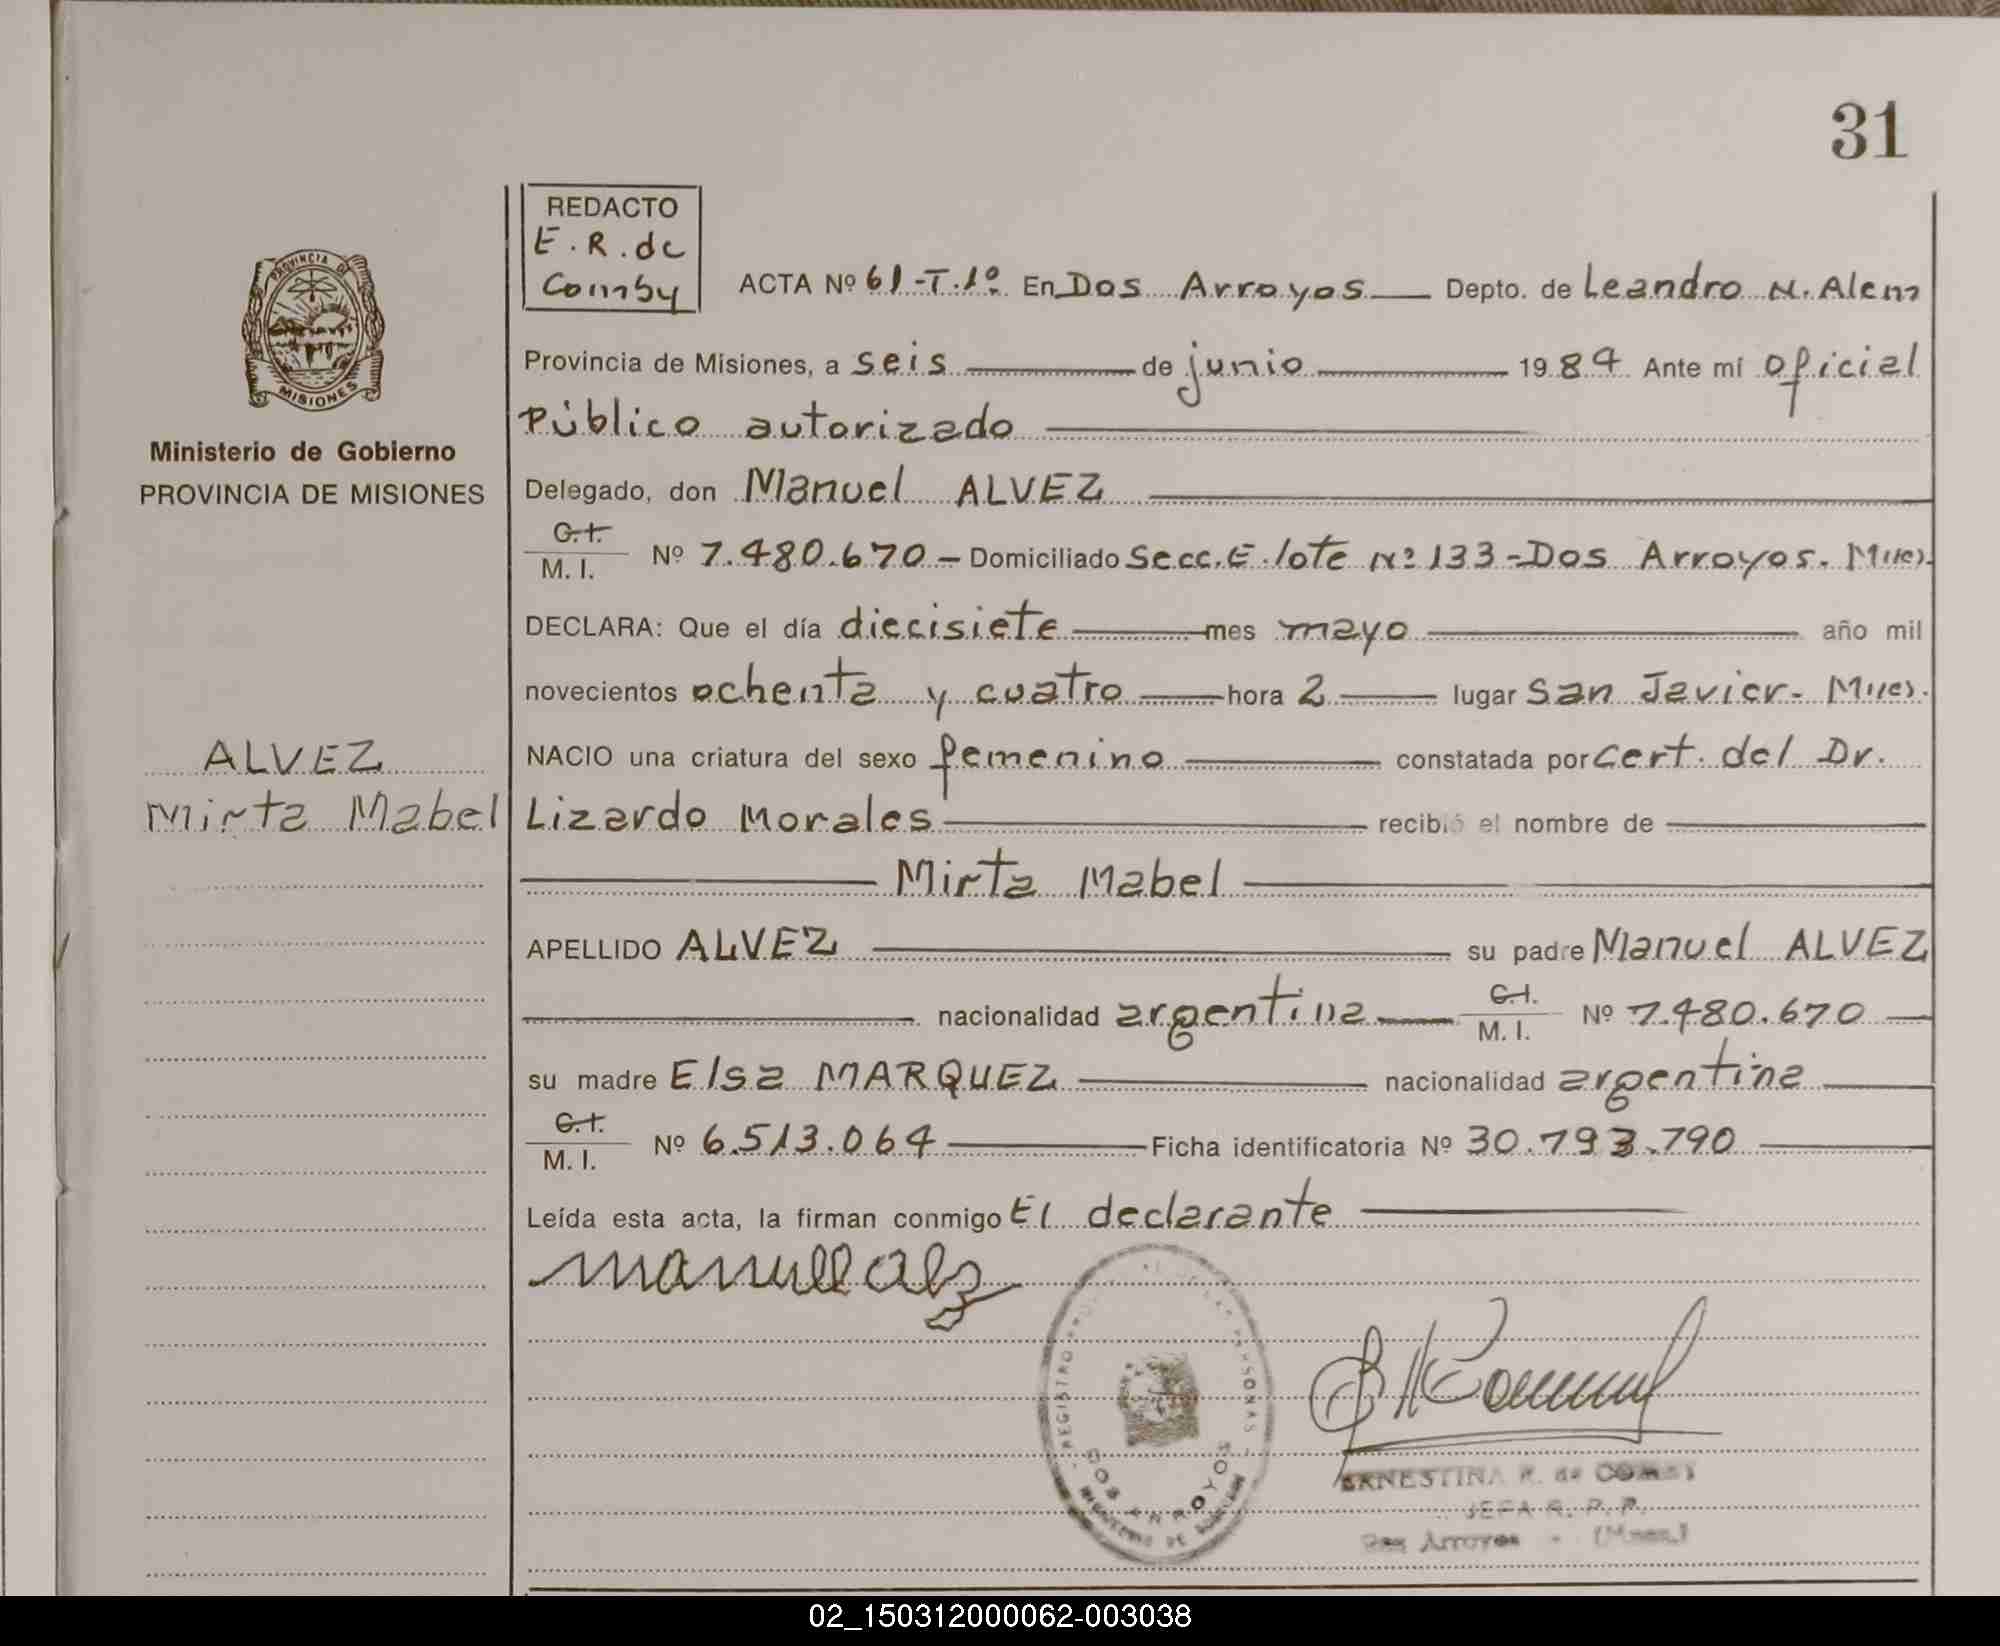 31
REDACTO
E. R. de
Comby
ACTA Nº 61-T.1º. En Dos Arroyos Depto. de Leandro N. Alem
Provincia de Misiones, a seis de junio 1984 Ante mí oficial
Público autorizado
Delegado, don Manuel ALVEZ
C.I.
M. I. Nº 7.480.670 - Domiciliado Secc. E. lote Nº 133 - Dos Arroyos. Mnes.
DECLARA: Que el día diecisiete mes mayo año mil
novecientos ochenta y cuatro hora 2 lugar San Javier - Mnes.
NACIO una criatura del sexo femenino constatada por Cert. del Dr.
Lizardo Morales recibió el nombre de
Mirta Mabel
APELLIDO ALVEZ su padre Manuel ALVEZ
nacionalidad argentina C.I.
M. I. Nº 7.480.670
su madre Elsa MARQUEZ nacionalidad argentina
C.I.
M. I. Nº 6.513.064 Ficha identificatoria Nº 30.793.790
Leída esta acta, la firman conmigo El declarante
PROVINCIA DE
MISIONES
Ministerio de Gobierno
PROVINCIA DE MISIONES
ALVEZ
Mirta Mabel
REGISTRO PERSONAS
DOS ARROYOS
ERNESTINA R. de COMBY
JEFA R. P. P.
Dos Arroyos - (Mnes.)
02_150312000062-003038